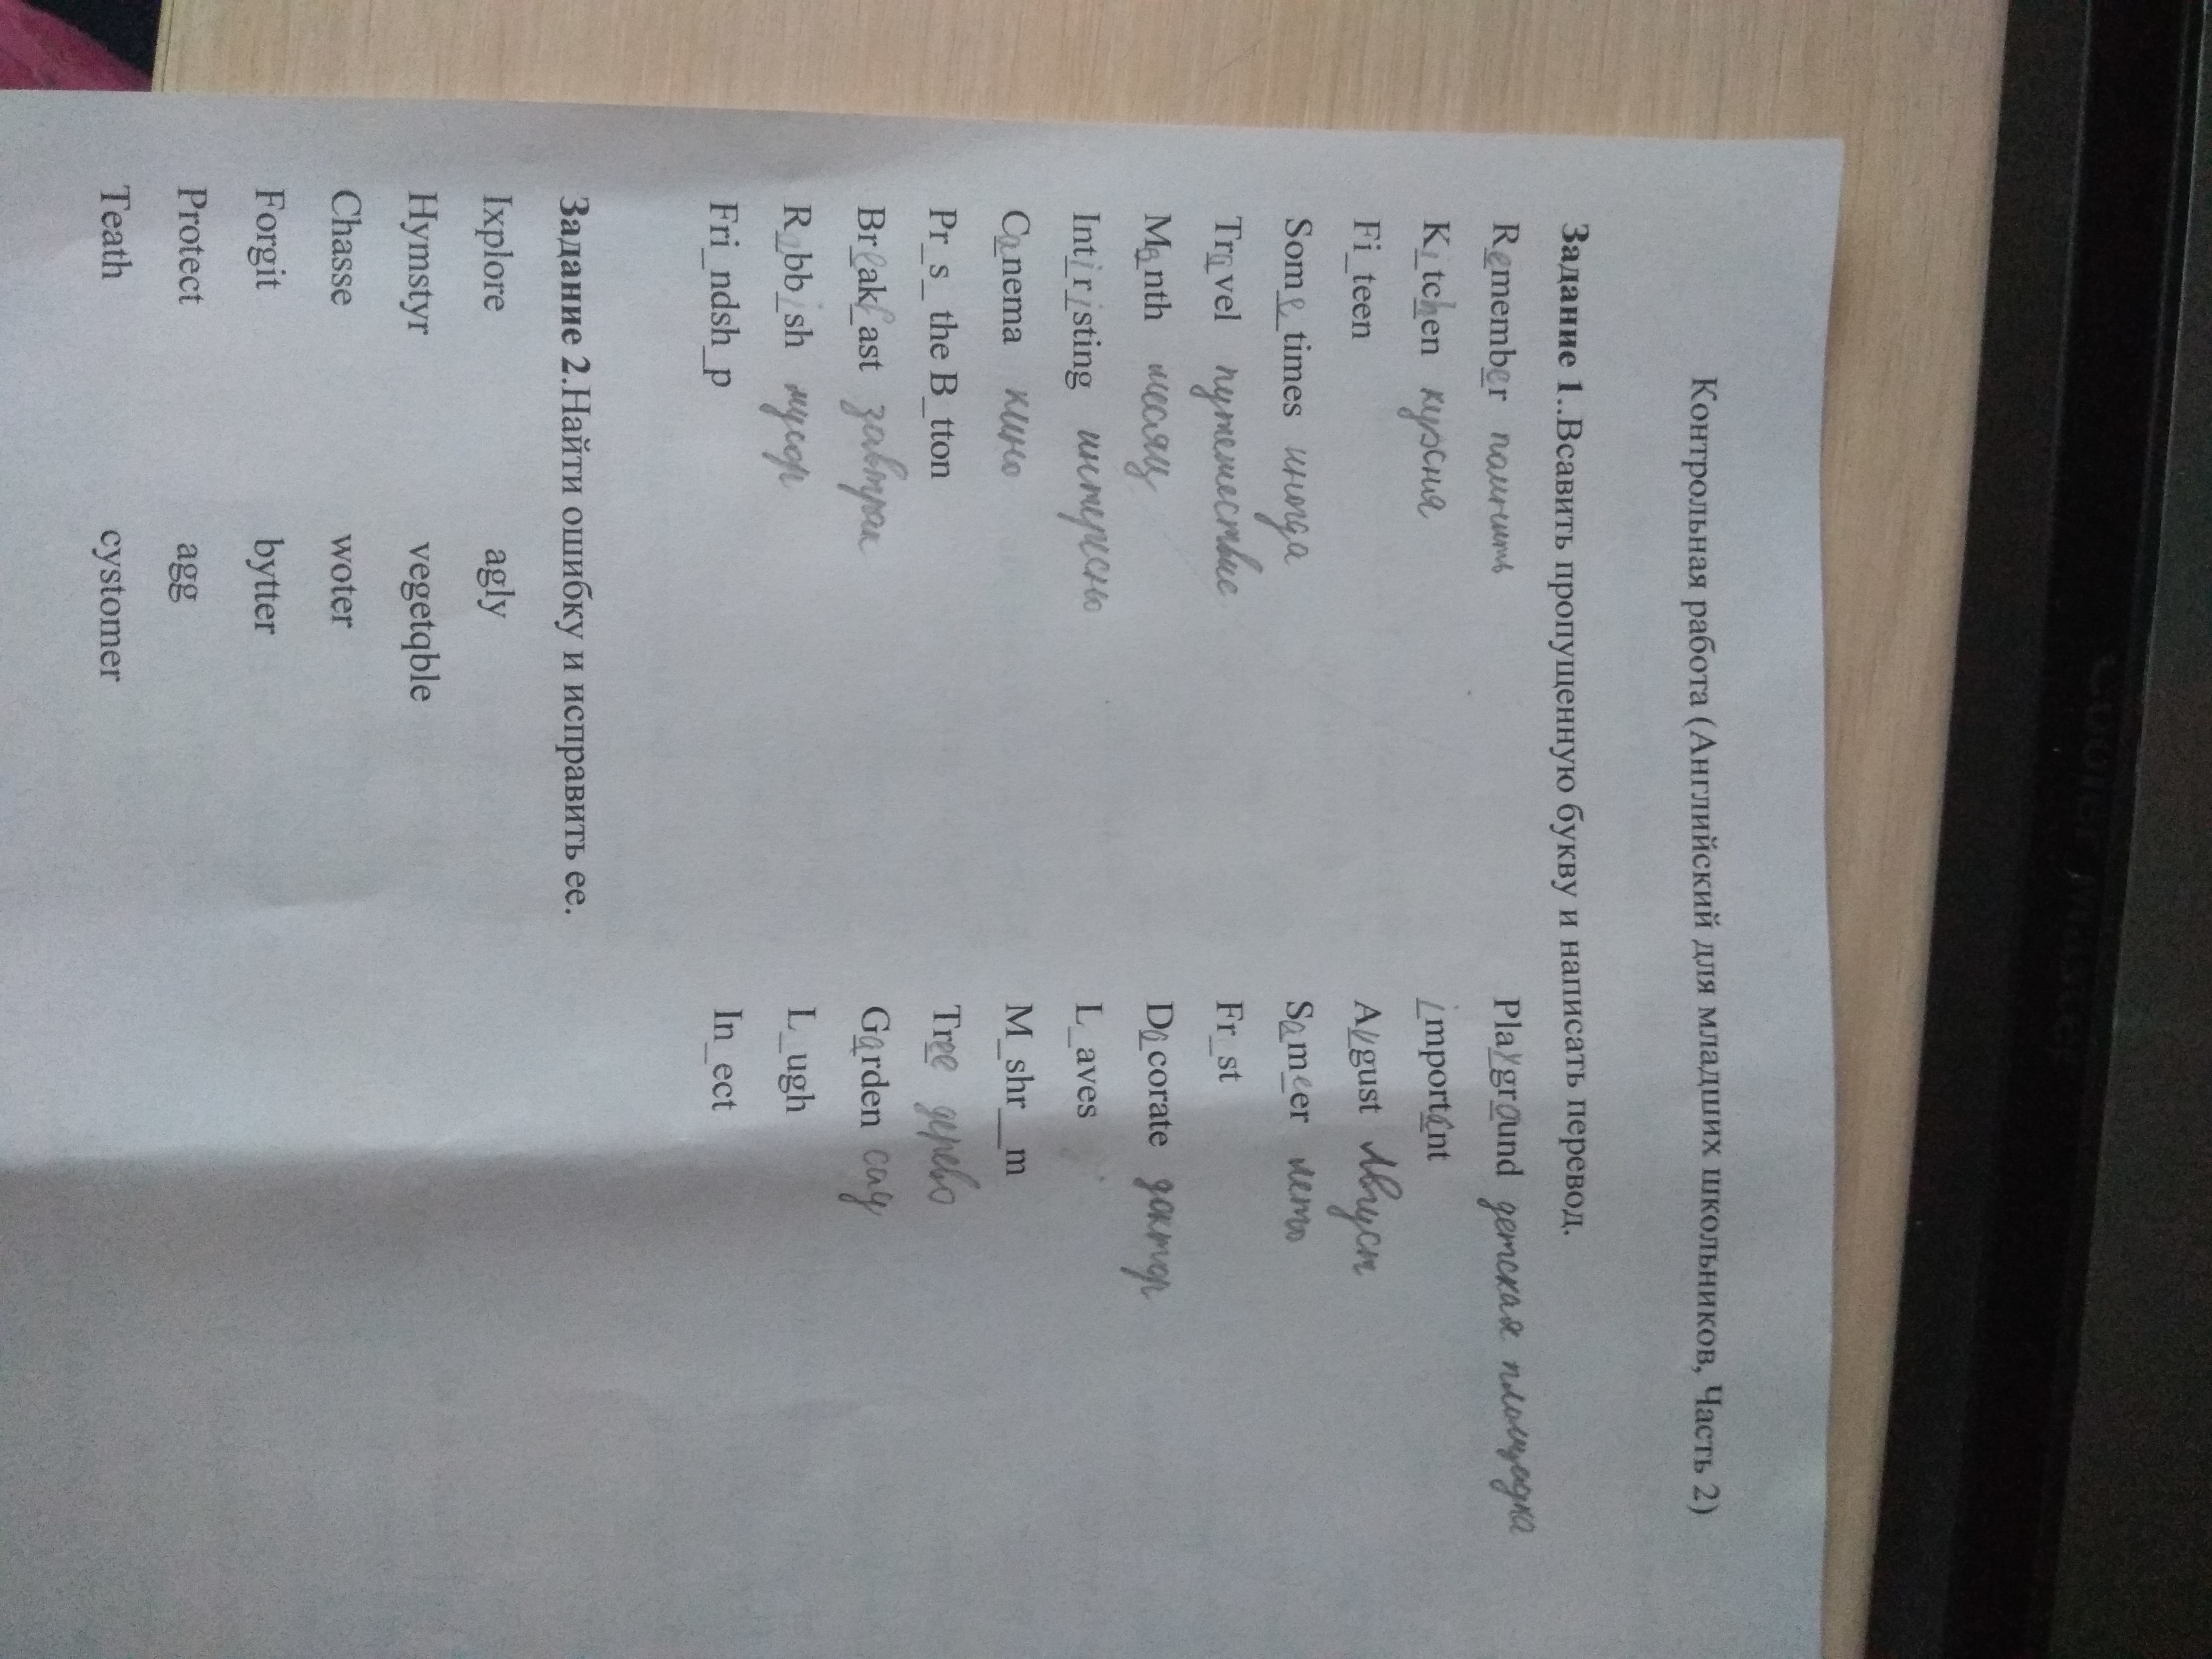 Контрольная работа (Английский для младших школьников, Часть 2)
Задание 1..Всавить пропущенную букву и написать перевод.
Remember помнить
Playground детская площадка
Kitchen кухня
important
Fi_teen
August Август
Some_times иногда
Sameer лето
Travel путешествие
Fr_st
Manth месяц
Dacorate доктор
Intiristing интересно
L_aves
Canema кино
M_shr__m
Pr_s_ the B_tton
Tree дерево
Breakfast завтрак
Garden сад
Rabbish мусор
L_ugh
Fri_ndsh_p
In_ect
Задание 2.Найти ошибку и исправить ее.
Ixplore agly
Hymstyr vegetqble
Chasse woter
Forgit bytter
Protect agg
Teath cystomer